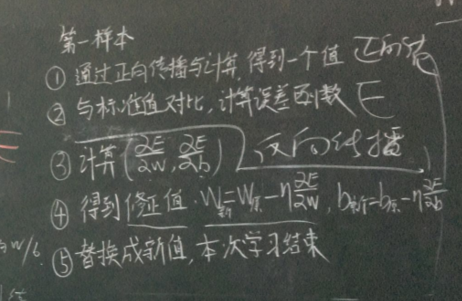 第一样本
① 通过正向传播与计算,得到一个值 正向传
② 与标准值对比,计算误差函数 E
③ 计算(∂E/∂w, ∂E/∂b) 反向传播
④ 得到修正值·W新=W原-η∂E/∂w, b新=b原-η∂E/∂b
w/b.
⑤ 替换成新值,本次学习结束